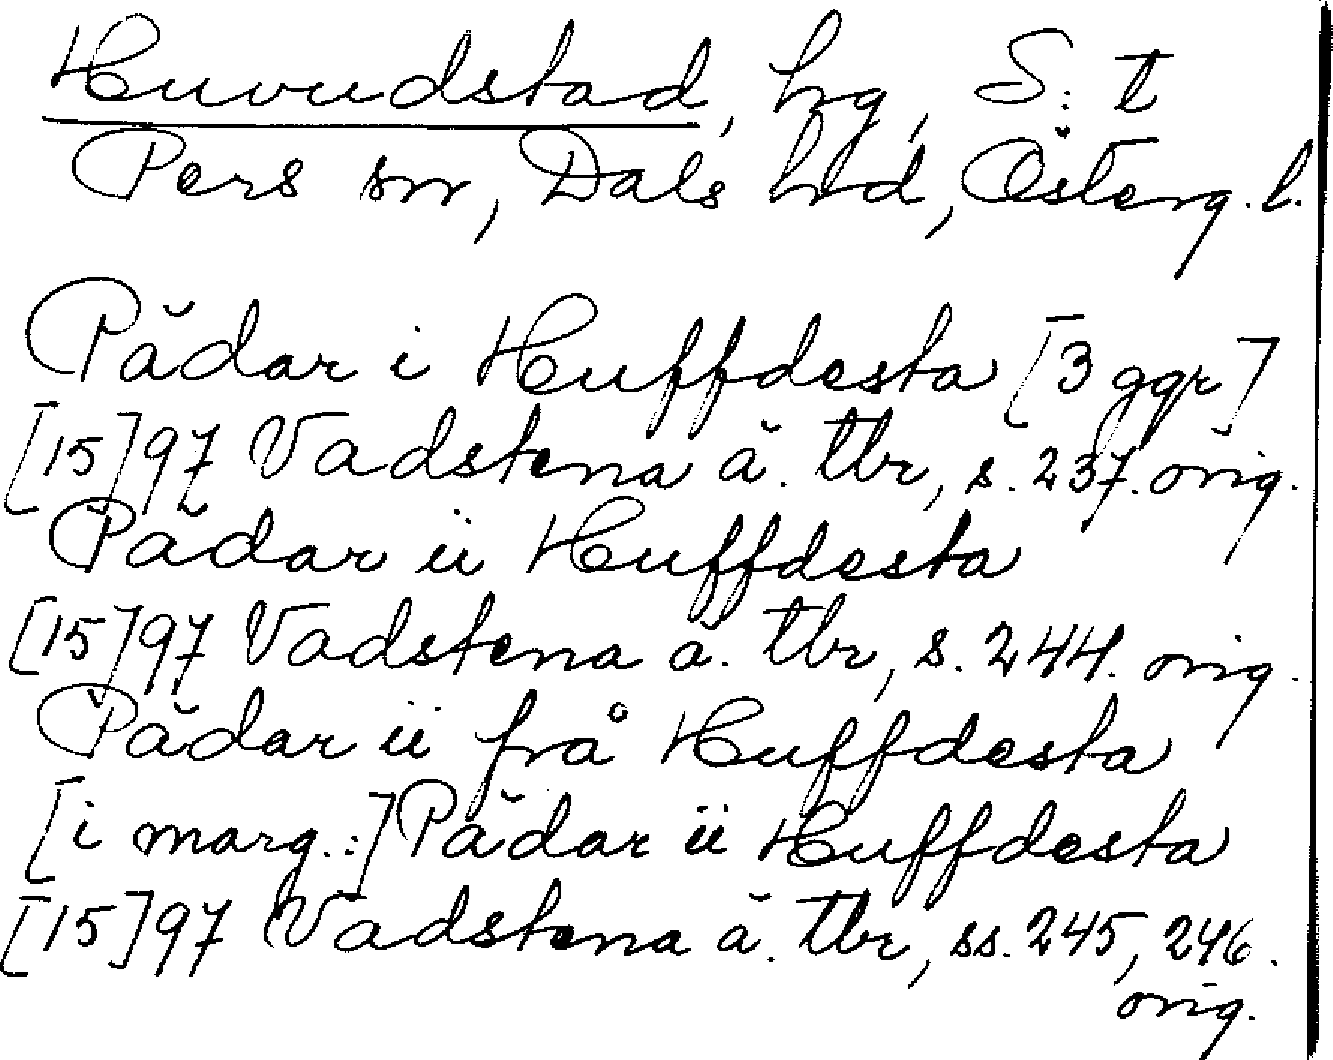 Huvudstad, hg, S:t
Pers sn, Dals hd, Österg.l.
Pädar i Huffdesta [3 ggr]
[15]97 Vadstena ä. tbr, s. 237. orig.
Pädar ii Huffdesta
[15]97 Vadstena ä. tbr, s. 244. orig.
Pädar ii frå Huffdesta
[i marg.:] Pädar ii Huffdesta
[15]97 Vadstena ä. tbr, ss. 245, 246.
orig.